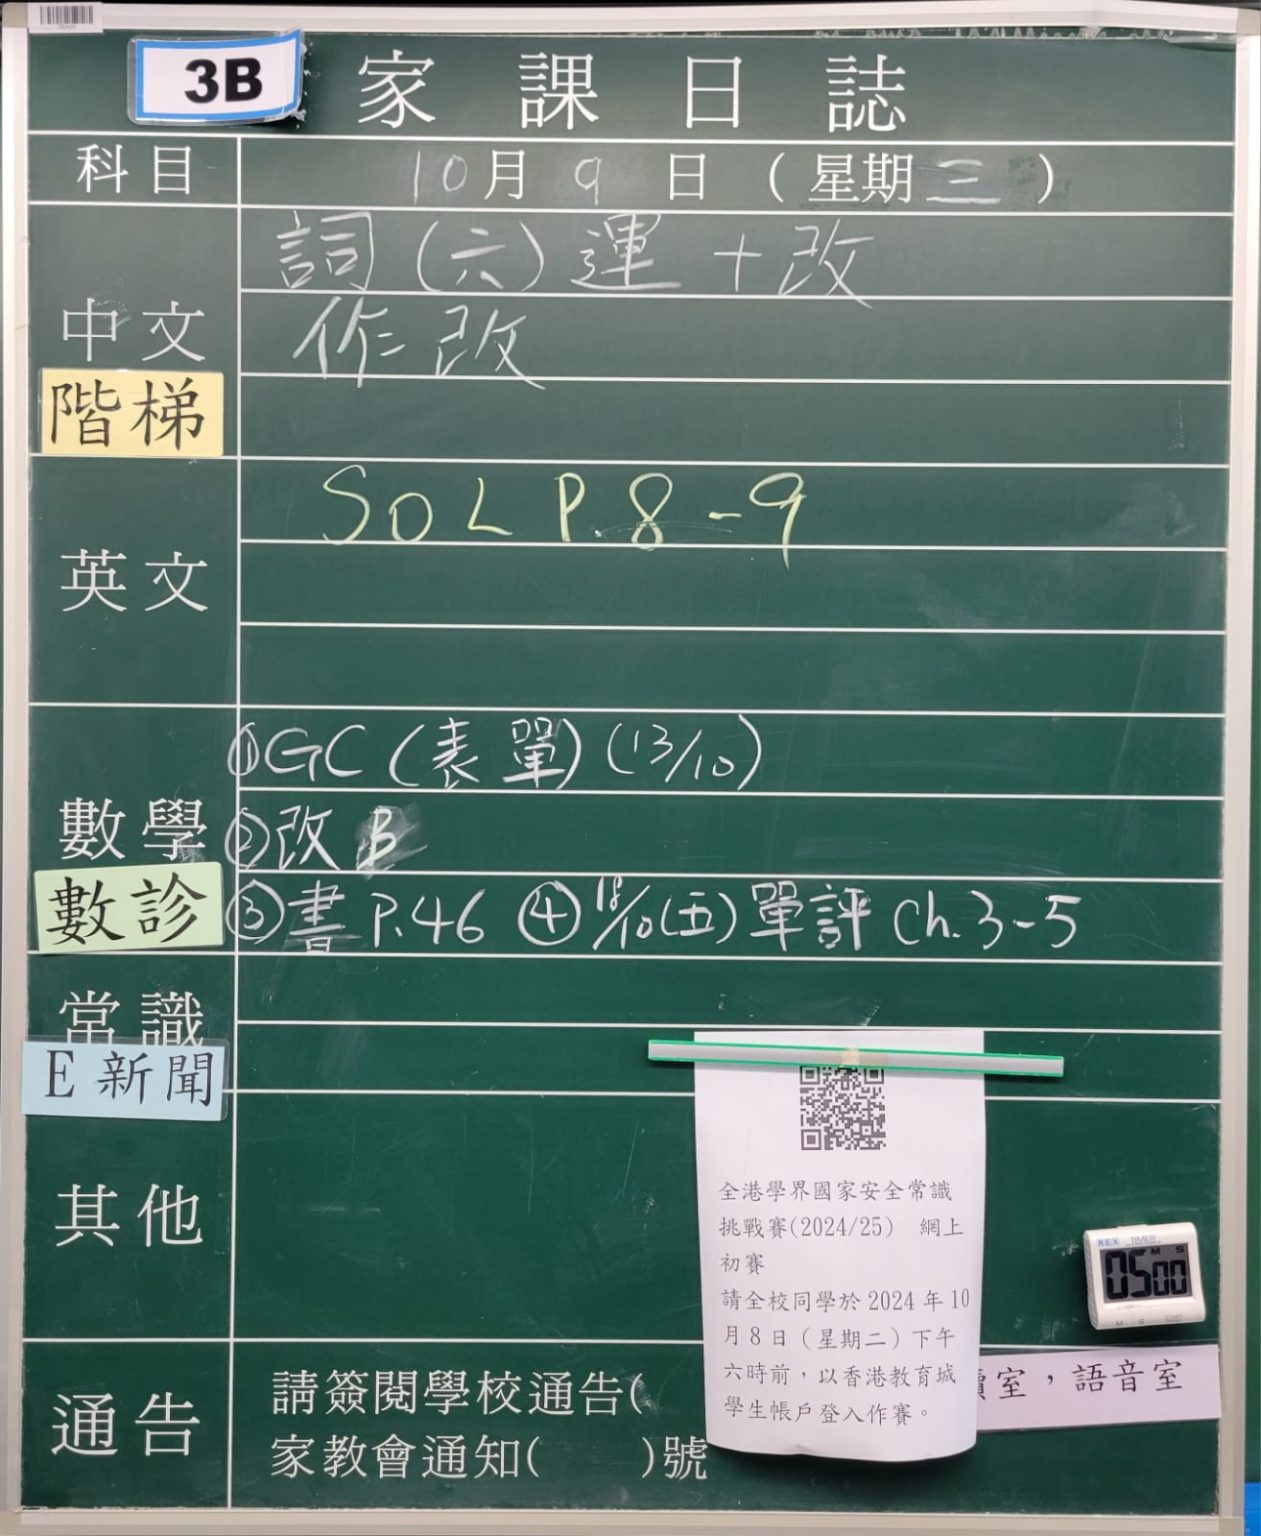 3B 家課日誌
科目 10月9日(星期三)
中文
詞(六)運+改
作改
階梯
英文
SOL P.8-9
數學
①GC(表單)(13/10)
②改B
數診
③書P.46 ④18/10(五)單評Ch.3-5
常識
E新聞
其他
全港學界國家安全常識
挑戰賽(2024/25) 網上
初賽
請全校同學於2024年10
月8日(星期二)下午
六時前,以香港教育城
學生帳戶登入作賽。
REX TIMER
M S
05 00
M S
室,語音室
通告
請簽閱學校通告(
家教會通知( )號